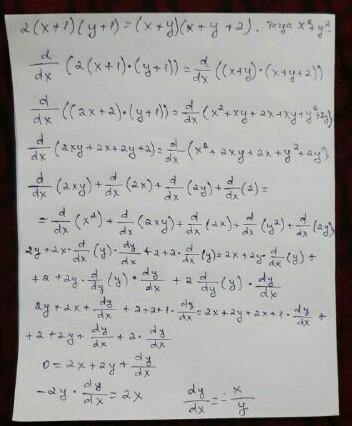 2(x+1)(y+1)=(x+y)(x+y+2). Тогда x²+y²
d/dx (2(x+1)·(y+1)) = d/dx ((x+y)·(x+y+2))
d/dx ((2x+2)·(y+1)) = d/dx (x²+xy+2x+xy+y²+2y)
d/dx (2xy+2x+2y+2) = d/dx (x²+2xy+2x+y²+2y)
d/dx (2xy) + d/dx (2x) + d/dx (2y) + d/dx (2) =
= d/dx (x²) + d/dx (2xy) + d/dx (2x) + d/dx (y²) + d/dx (2y)
2y+2x· d/dx (y)· dy/dx +2+2· d/dx (y)=2x+2y· d/dx (y) +
+2+2y· d/dy (y)· dy/dx +2 d/dy (y)· dy/dx
2y+2x+ dy/dx +2+2+1· dy/dx =2x+2y+2x+1· dy/dx +
+2+2y+ dy/dx +2· dy/dx
0=2x+2y+ dy/dx
-2y· dy/dx =2x dy/dx =- x/y